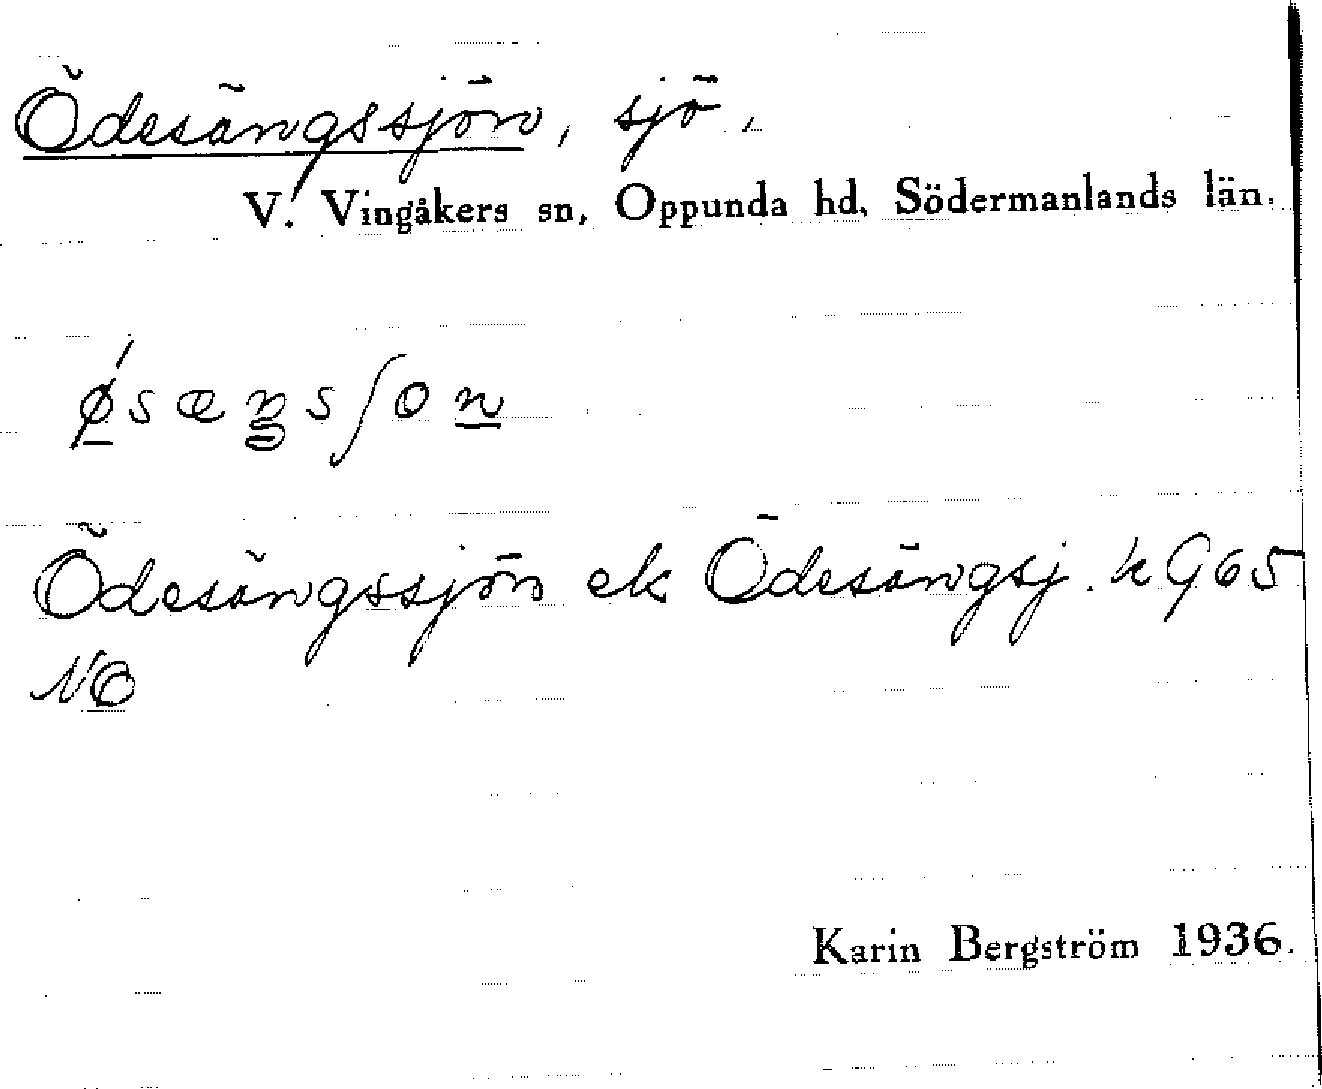 Ödesängssjön, sjö.
V. Vingåkers sn, Oppunda hd, Södermanlands län.
ǿsæŋsʃon
Ödesängssjön ek Ödesängsj. k G65
NO
Karin Bergström 1936.